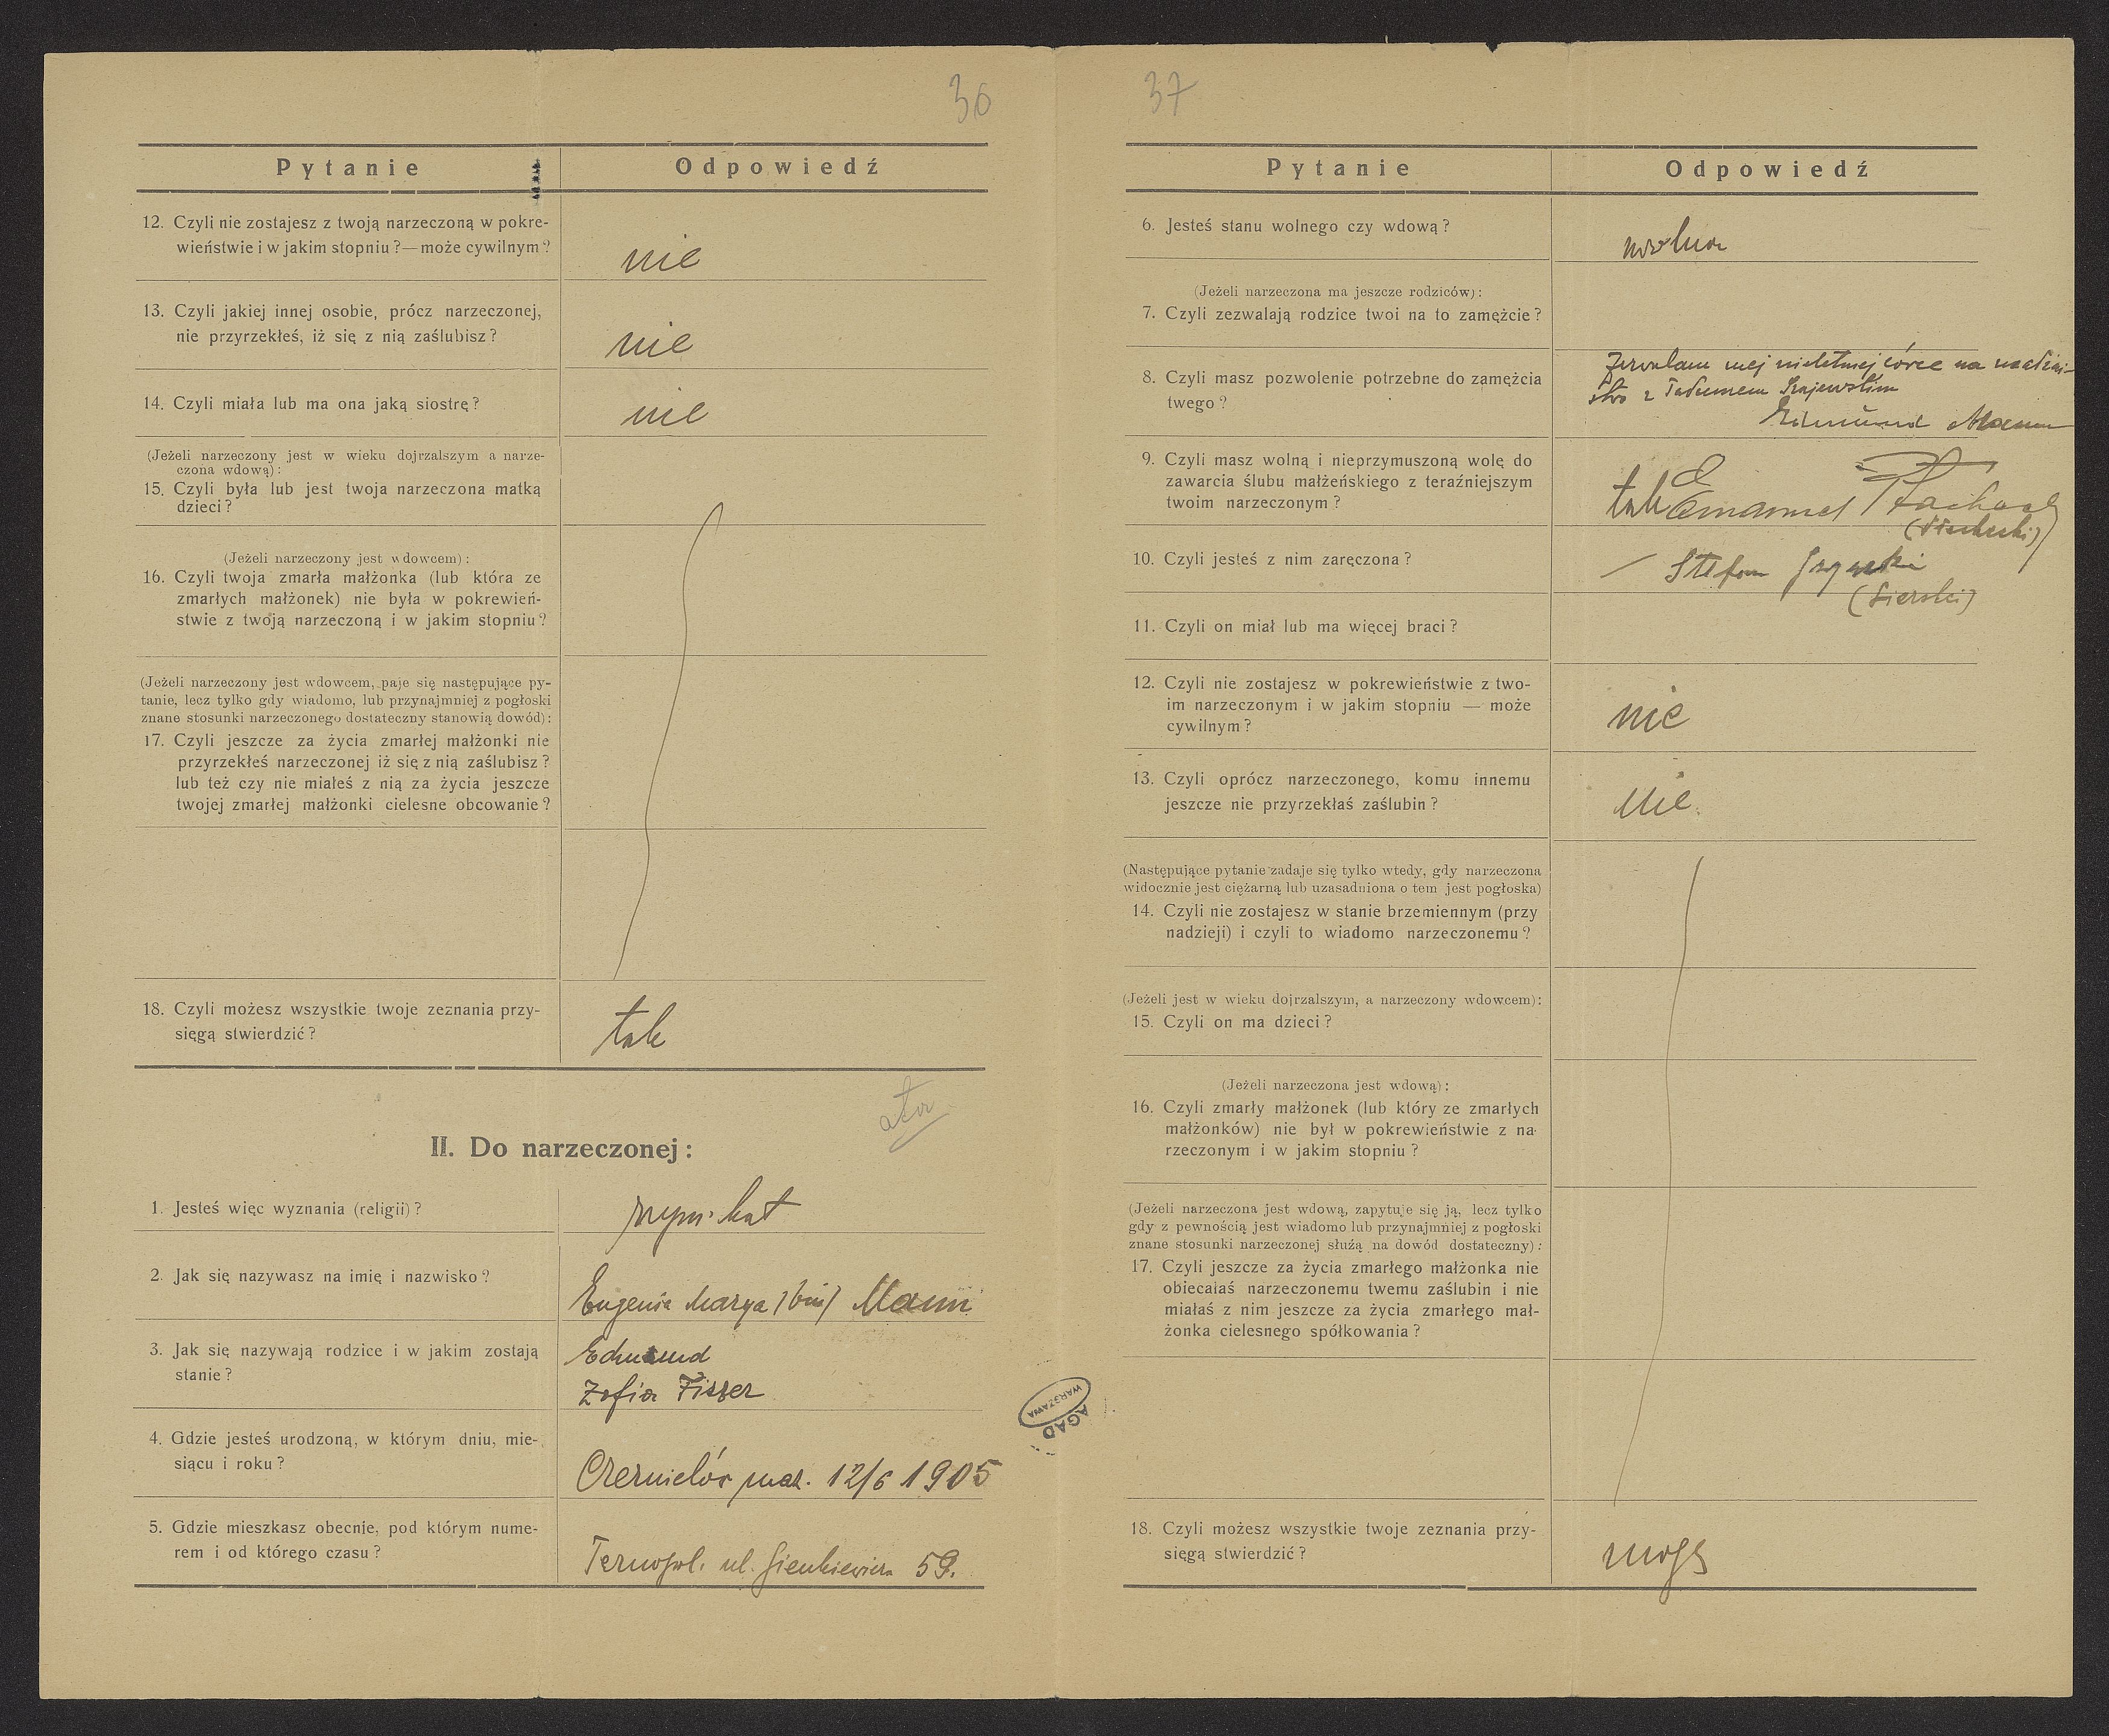 36
Pytanie Odpowiedź
12. Czyli nie zostajesz z twoją narzeczoną w pokre-
wieństwie i w jakim stopniu?—może cywilnym?
nie
13. Czyli jakiej innej osobie, prócz narzeczonej,
nie przyrzekłeś, iż się z nią zaślubisz?
nie
14. Czyli miała lub ma ona jaką siostrę?
nie
(Jeżeli narzeczony jest w wieku dojrzalszym a narze-
czona wdową):
15. Czyli była lub jest twoja narzeczona matką
dzieci?
(Jeżeli narzeczony jest wdowcem):
16. Czyli twoja zmarła małżonka (lub która ze
zmarłych małżonek) nie była w pokrewień-
stwie z twoją narzeczoną i w jakim stopniu?
(Jeżeli narzeczony jest wdowcem, paje się następujące py-
tanie, lecz tylko gdy wiadomo, lub przynajmniej z pogłoski
znane stosunki narzeczonego dostateczny stanowią dowód):
17. Czyli jeszcze za życia zmarłej małżonki nie
przyrzekłeś narzeczonej iż się z nią zaślubisz?
lub też czy nie miałeś z nią za życia jeszcze
twojej zmarłej małżonki cielesne obcowanie?
18. Czyli możesz wszystkie twoje zeznania przy-
sięgą stwierdzić?
tak
II. Do narzeczonej:
1. Jesteś więc wyznania (religii)?
rzym. kat
2. Jak się nazywasz na imię i nazwisko?
Eugenia Marya Mann
3. Jak się nazywają rodzice i w jakim zostają
stanie?
Edmund
Zofia Fiszer
4. Gdzie jesteś urodzoną, w którym dniu, mie-
siącu i roku?
Czernielów maz. 12/6 1905
5. Gdzie mieszkasz obecnie, pod którym nume-
rem i od którego czasu?
Ternopol. ul. Sienkiewicza 59.
AGAD
WARSZAWA
37
Pytanie Odpowiedź
6. Jesteś stanu wolnego czy wdową?
wolna
(Jeżeli narzeczona ma jeszcze rodziców):
7. Czyli zezwalają rodzice twoi na to zamężcie?
8. Czyli masz pozwolenie potrzebne do zamężcia
twego?
Zezwalam mej nieletniej córce na małżeń-
stwo z Tadeuszem
Edmund Mann
9. Czyli masz wolną i nieprzymuszoną wolę do
zawarcia ślubu małżeńskiego z teraźniejszym
twoim narzeczonym?
tak Emanuel
10. Czyli jesteś z nim zaręczona?
Stefan
11. Czyli on miał lub ma więcej braci?
12. Czyli nie zostajesz w pokrewieństwie z two-
im narzeczonym i w jakim stopniu — może
cywilnym?
nie
13. Czyli oprócz narzeczonego, komu innemu
jeszcze nie przyrzekłaś zaślubin?
nie.
(Następujące pytanie zadaje się tylko wtedy, gdy narzeczona
widocznie jest ciężarną lub uzasadniona o tem jest pogłoska)
14. Czyli nie zostajesz w stanie brzemiennym (przy
nadzieji) i czyli to wiadomo narzeczonemu?
(Jeżeli jest w wieku dojrzalszym, a narzeczony wdowcem):
15. Czyli on ma dzieci?
(Jeżeli narzeczona jest wdową):
16. Czyli zmarły małżonek (lub który ze zmarłych
małżonków) nie był w pokrewieństwie z na-
rzeczonym i w jakim stopniu?
(Jeżeli narzeczona jest wdową, zapytuje się ją, lecz tylko
gdy z pewnością jest wiadomo lub przynajmniej z pogłoski
znane stosunki narzeczonej służą na dowód dostateczny):
17. Czyli jeszcze za życia zmarłego małżonka nie
obiecałaś narzeczonemu twemu zaślubin i nie
miałaś z nim jeszcze za życia zmarłego mał-
żonka cielesnego spółkowania?
18. Czyli możesz wszystkie twoje zeznania przy-
sięgą stwierdzić?
mogę